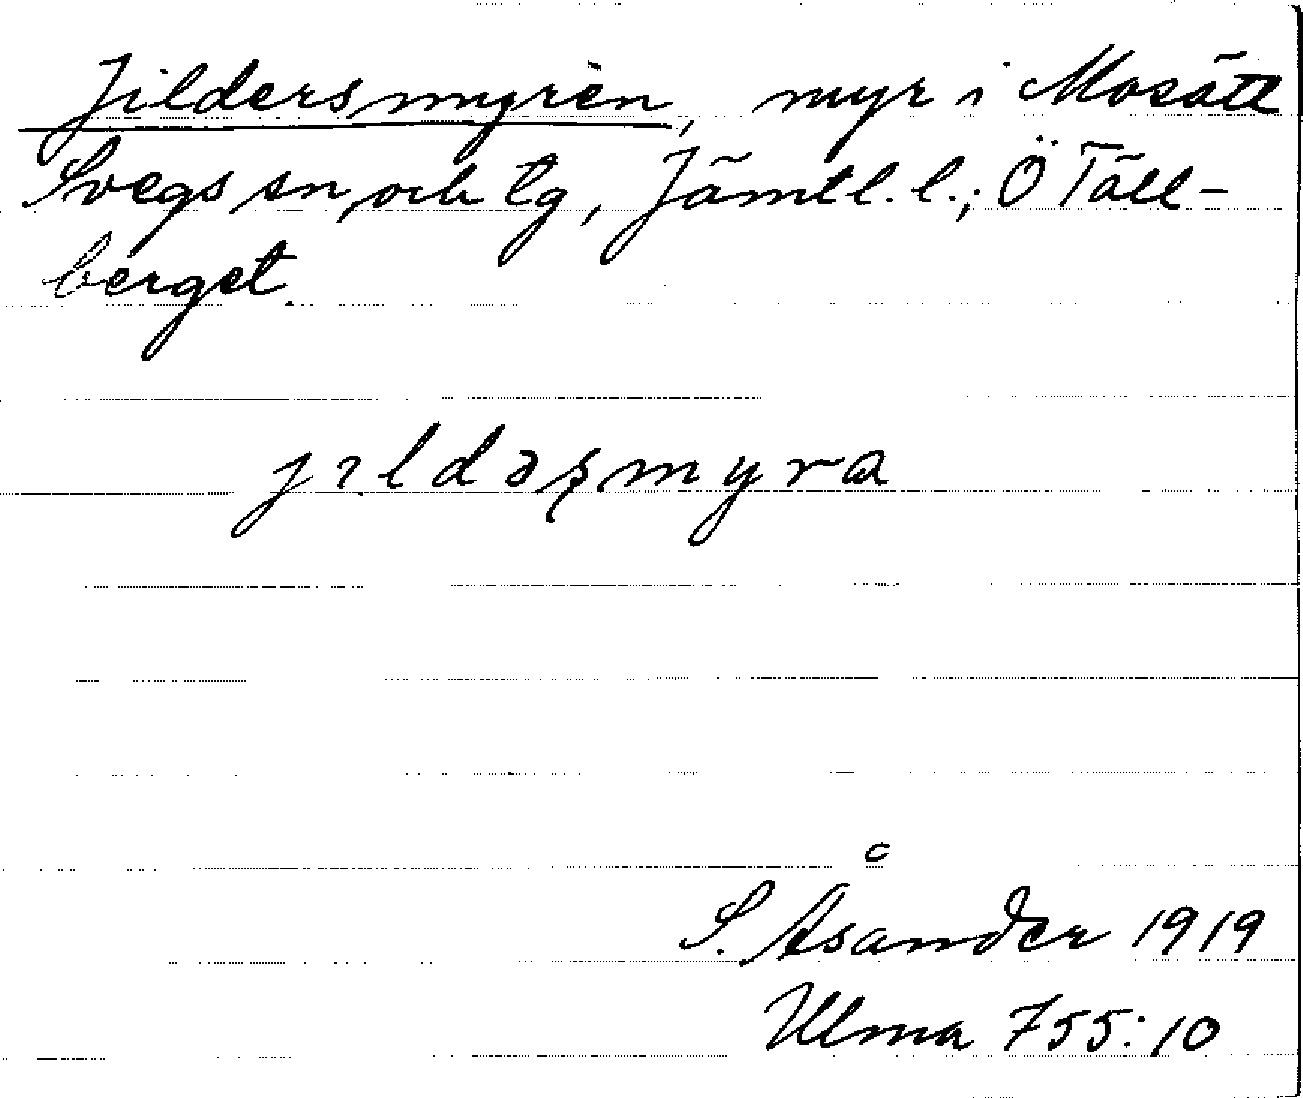 Jildersmyrèn, myr i Mosätt
Svegs sn och tg, Jämtl. l.; Ö Täll-
berget.
jıldəʂmyra
S. Åsander 1919
Ulma 755:10